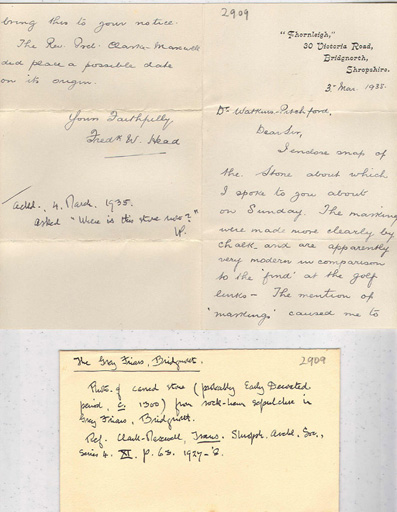 2909
"Thornleigh,"
30 Victoria Road,
Bridgnorth,
Shropshire.
3rd Mar. 1935.
Dr Watkins-Pitchford,
Dear Sir,
I enclose snap of
the stone about which
I spoke to you about
on Sunday. The marking
were made more clearly by
chalk and are apparently
very modern in comparison
to the 'find' at the golf
links – The mention of
'markings' caused me to
bring this to your notice.
The Rev. Preb. Clarke-Maxwell
did place a possible date
on its origin.
Yours Faithfully,
Fredk W. Head
4. March. 1935.
asked "Where is this stone now?"
WP.
The Grey Friars, Bridgnorth.
2909
Photo. of carved stone (probably Early Decorated
period, c. 1300) from rock-hewn sepulchre in
Grey Friars, Bridgnorth.
Ref. Clark-Maxwell, Trans. Shropsh. Archl. Soc.,
Series 4. XI. p. 63. 1927-'8.